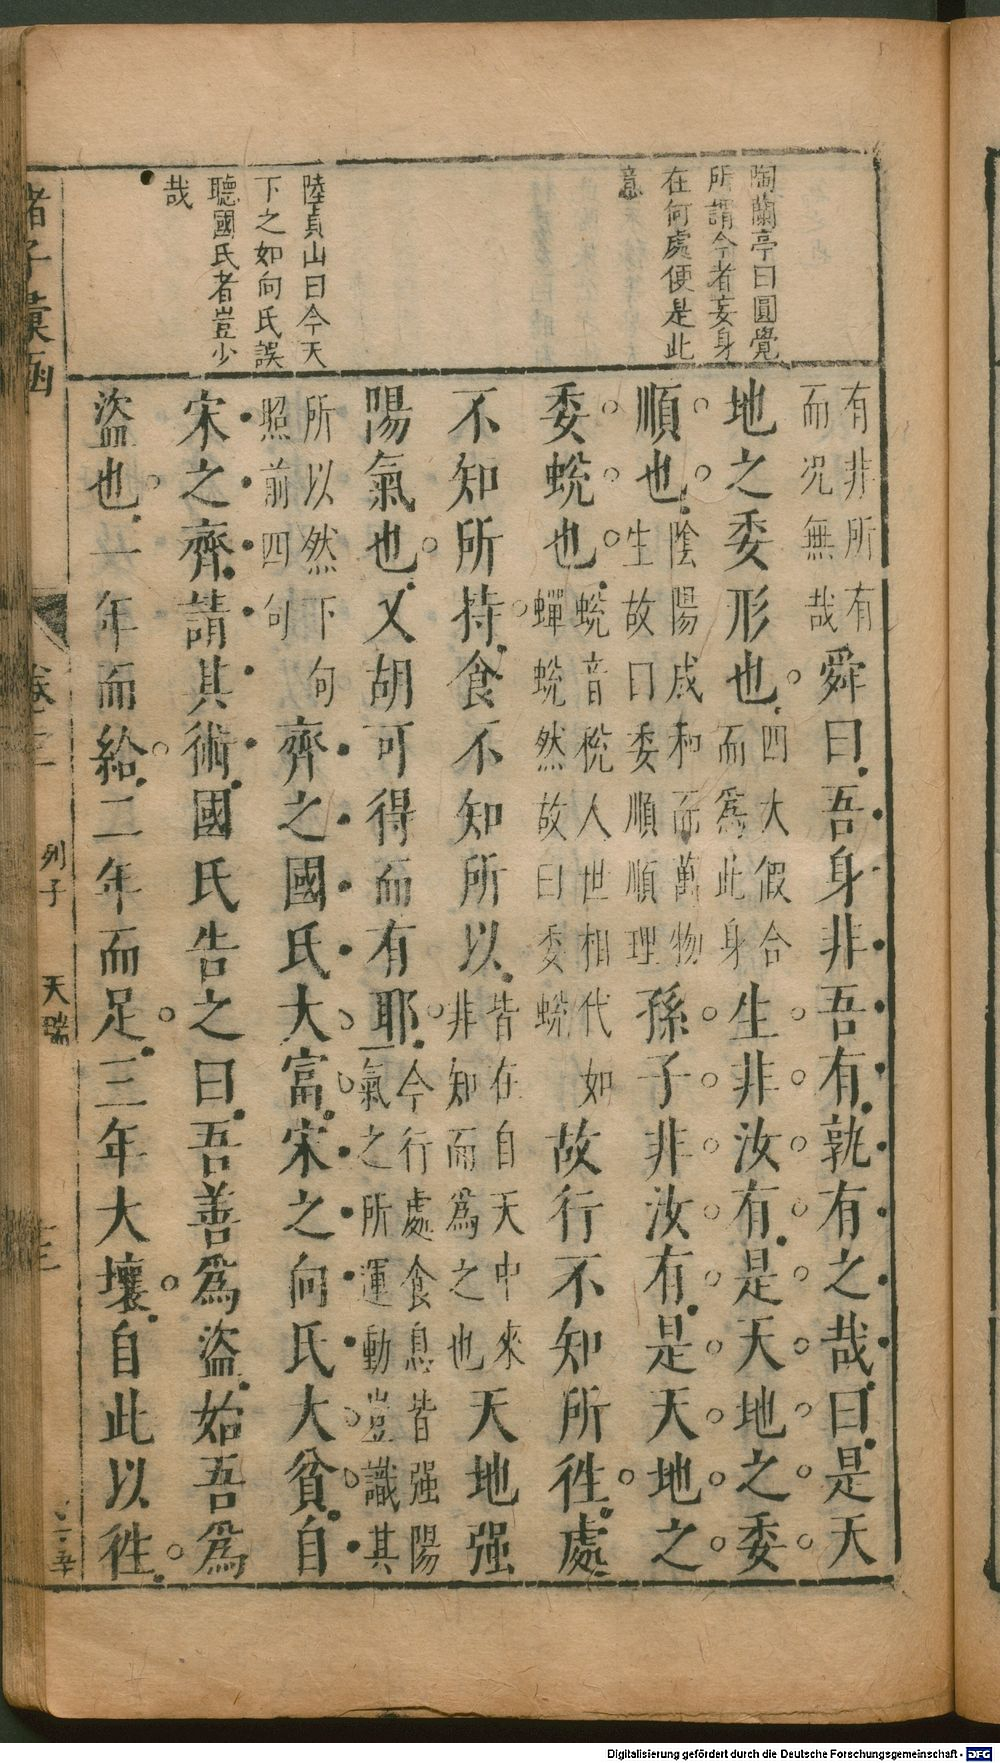 陶蘭亭曰圓覺
所謂今者妄身
在何處便是此
意
陸貞山曰今天
下之如向氏誤
聽國氏者豈少
哉
有非所有
而况無哉
舜曰吾身非吾有孰有之哉曰是天
地之委形也
四大假合
而爲此身
生非汝有是天地之委
順也
陰陽成和而萬物
生故曰委順順理
孫子非汝有是天地之
委蛻也
蛻音梲人世相代如
蟬蛻然故曰委蛻
故行不知所徃處
不知所持食不知所以
皆在自天中來
非知而爲之也
天地强
陽氣也又胡可得而有耶
今行處食息皆强陽
一氣之所運動豈識其
所以然下句
照前四句
齊之國氏大富宋之向氏大貧自
宋之齊請其術國氏告之曰吾善爲盜始吾爲
盜也一年而給二年而足三年大壤自此以徃
諸子彙函
卷之二
列子
天瑞
Digitalisierung gefördert durch die Deutsche Forschungsgemeinschaft - DFG